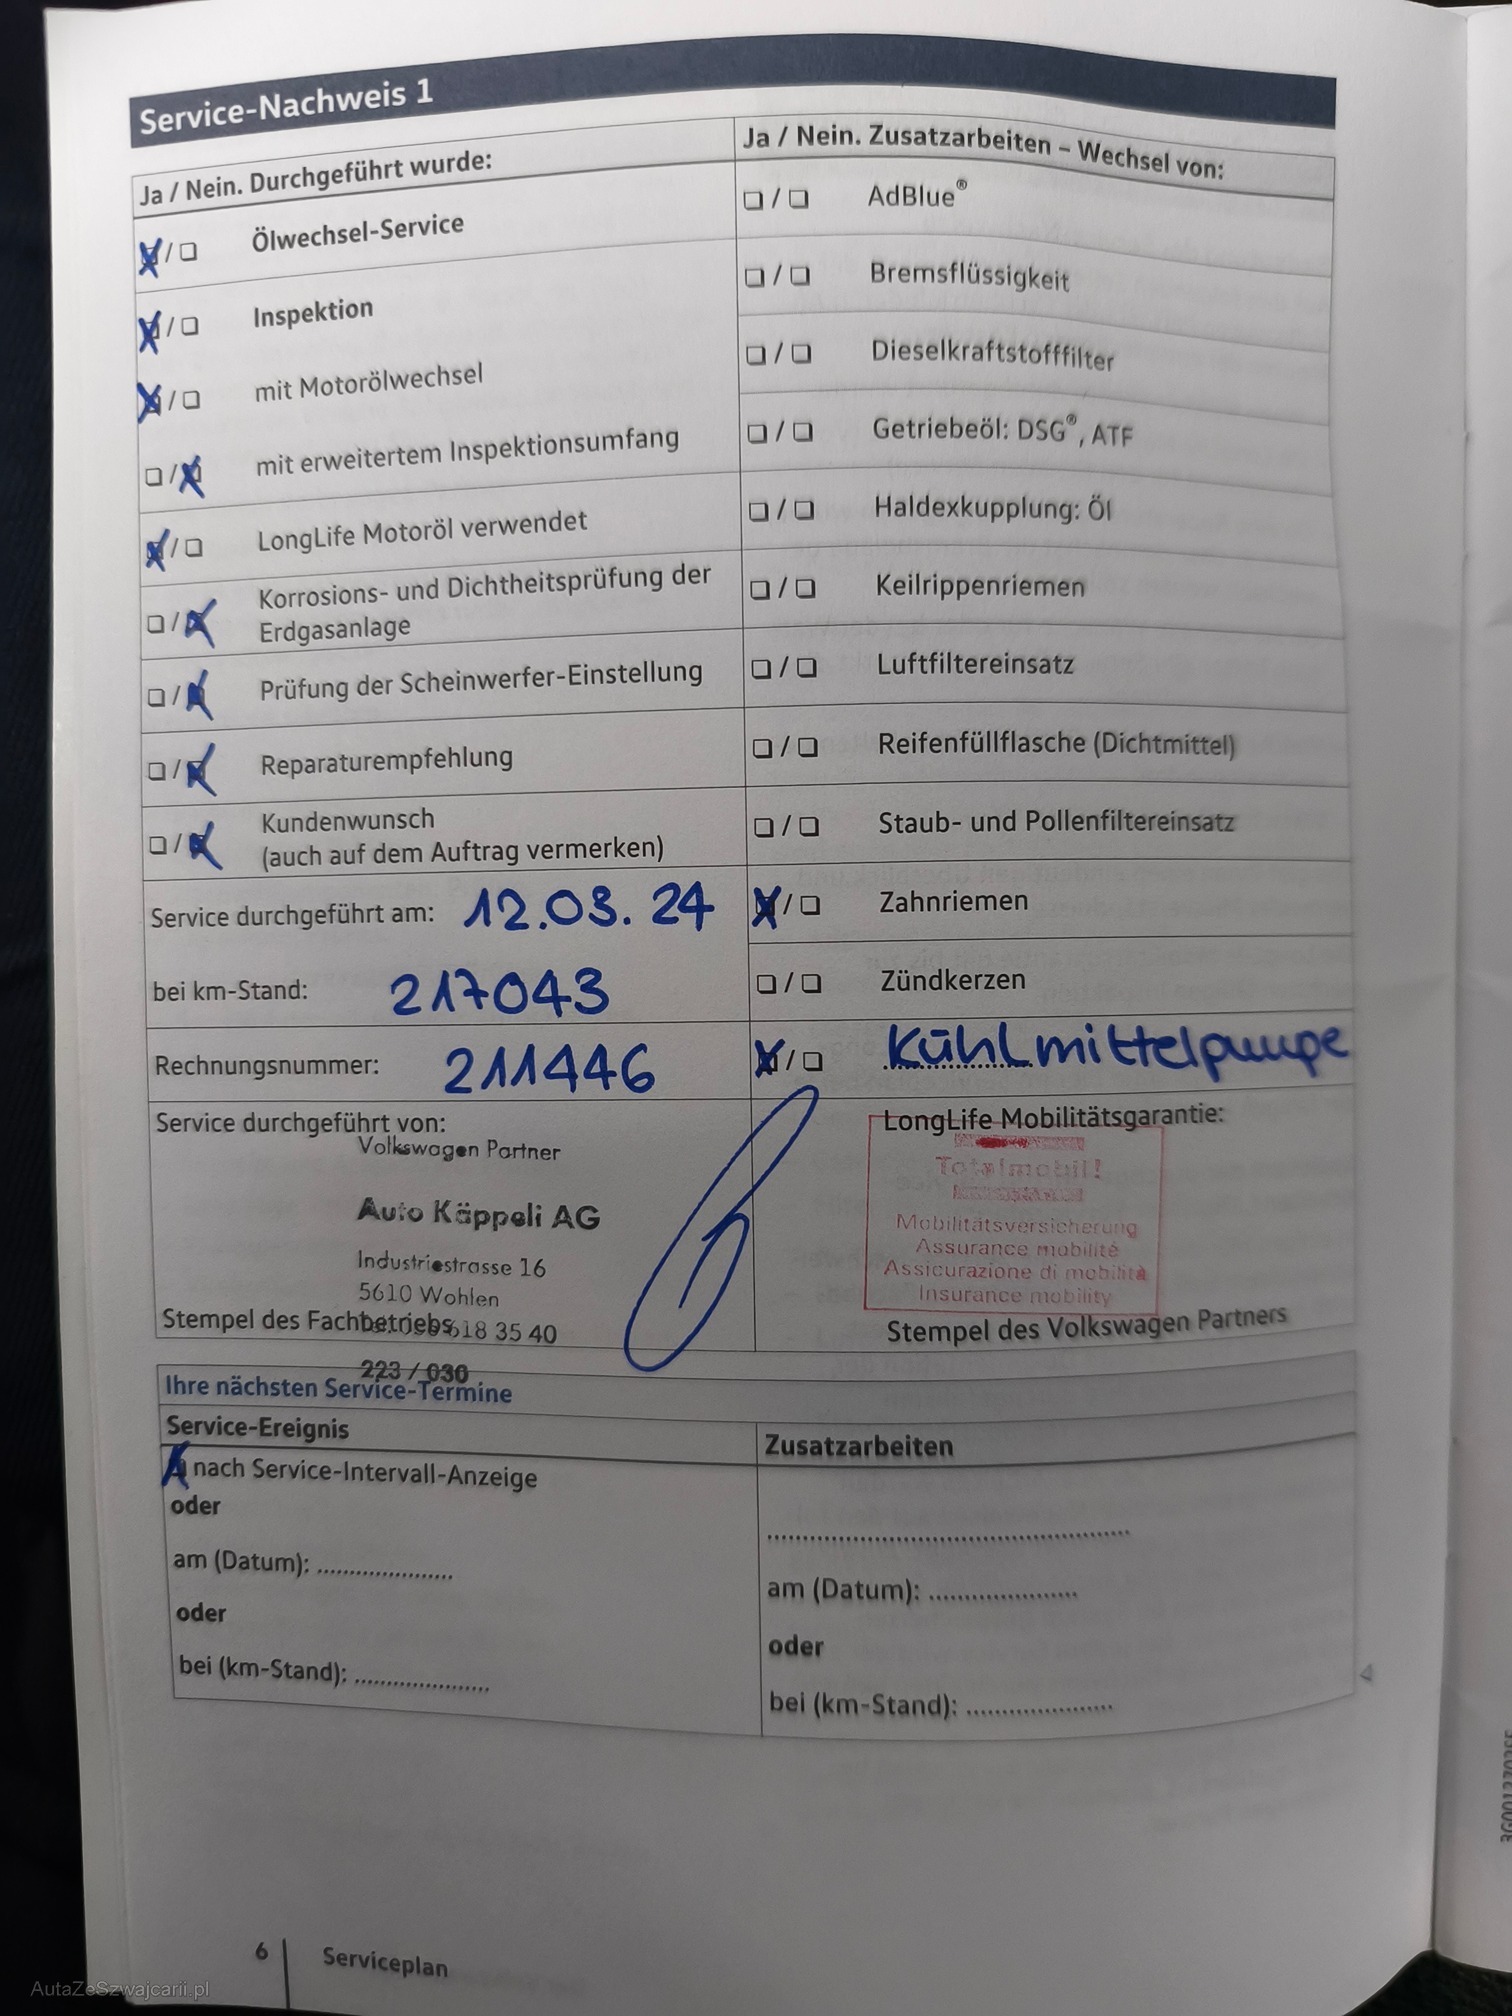 Service-Nachweis 1
Ja / Nein. Durchgeführt wurde:
Ölwechsel-Service
Inspektion
mit Motorölwechsel
mit erweitertem Inspektionsumfang
LongLife Motoröl verwendet
Korrosions- und Dichtheitsprüfung der
Erdgasanlage
Prüfung der Scheinwerfer-Einstellung
Reparaturempfehlung
Kundenwunsch
(auch auf dem Auftrag vermerken)
Service durchgeführt am: 12.03.24
bei km-Stand: 217043
Rechnungsnummer: 211446
Service durchgeführt von:
Volkswagen Partner
Auto Käppeli AG
Industriestrasse 16
5610 Wohlen
618 35 40
Stempel des Fachbetriebs
223 / 030
Ja / Nein. Zusatzarbeiten – Wechsel von:
AdBlue®
Bremsflüssigkeit
Dieselkraftstofffilter
Getriebeöl: DSG®, ATF
Haldexkupplung: Öl
Keilrippenriemen
Luftfiltereinsatz
Reifenfüllflasche (Dichtmittel)
Staub- und Pollenfiltereinsatz
Zahnriemen
Zündkerzen
Kühlmittelpumpe
LongLife Mobilitätsgarantie:
Totalmobil!
Mobilitätsversicherung
Assurance mobilité
Assicurazione di mobilità
Insurance mobility
Stempel des Volkswagen Partners
Ihre nächsten Service-Termine
Service-Ereignis
nach Service-Intervall-Anzeige
oder
am (Datum): ......................
oder
bei (km-Stand): ......................
Zusatzarbeiten
am (Datum): ......................
oder
bei (km-Stand): ......................
6 Serviceplan
AutaZeSzwajcarii.pl